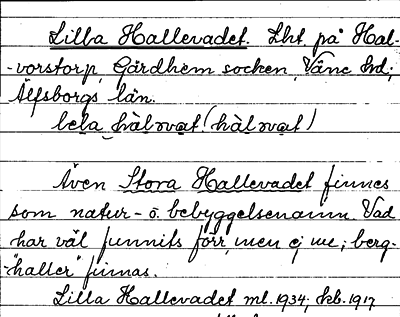 Lilla Hallevadet. Lht på Hal-
-vorstorp, Gärdhem socken, Väne hd;
Älfsborgs län.
Även Stora Hallevadet finnes
som natur- o. bebyggelsenamn. Vad
har väl funnits förr, men ej nu; berg-
-"haller" finnas.
Lilla Hallevadet ml. 1934; kb. 1917